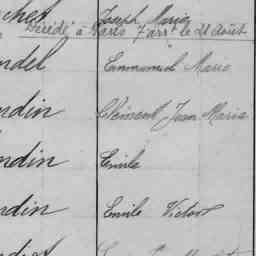 Joseph Marie
Décédé à Paris 7 arrt le 21 Août
ndel Emmanuel Marie
ndin Clément Jean Marie
ndin Emile
ndin Emile Victor